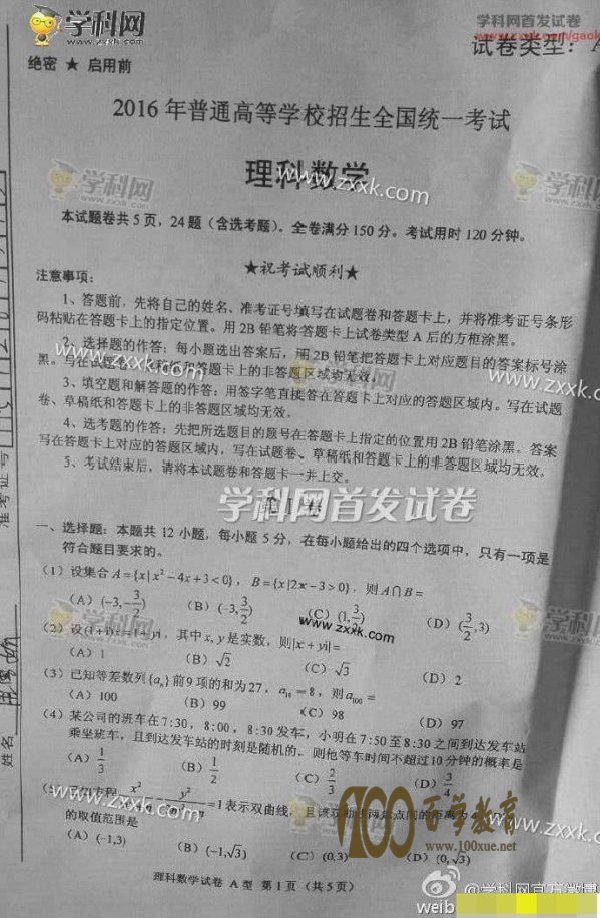 学科网
学科网首发试卷
www.zxxk.com/gaok
试卷类型：A
绝密 ★ 启用前
2016 年普通高等学校招生全国统一考试
理科数学
学科网
www.zxxk.com
学科网
本试题卷共 5 页，24 题（含选考题）。全卷满分 150 分。考试用时 120 分钟。
★祝考试顺利★
注意事项：
1、答题前，先将自己的姓名、准考证号填写在试题卷和答题卡上，并将准考证号条形
码粘贴在答题卡上的指定位置。用 2B 铅笔将答题卡上试卷类型 A 后的方框涂黑。
2、选择题的作答：每小题选出答案后，用 2B 铅笔把答题卡上对应题目的答案标号涂
黑。写在试题卷、草稿纸和答题卡上的非答题区域均无效。
www.zxxk.com
www.zxxk.com
3、填空题和解答题的作答：用签字笔直接答在答题卡上对应的答题区域内。写在试题
卷、草稿纸和答题卡上的非答题区域均无效。
4、选考题的作答：先把所选题目的题号在答题卡上指定的位置用 2B 铅笔涂黑。答案
写在答题卡上对应的答题区域内，写在试题卷、草稿纸和答题卡上的非答题区域均无效。
5、考试结束后，请将本试题卷和答题卡一并上交。
学科网首发试卷
准考证号
一、选择题：本题共 12 小题，每小题 5 分，在每小题给出的四个选项中，只有一项是
符合题目要求的。
（1）设集合 A={x|x²−4x+3<0}，B={x|2x−3>0}，则 A∩B=
（A）(−3,−3/2) （B）(−3,3/2) （C）(1,3/2) （D）(3/2,3)
www.zxxk.com
（2）设(1+i)x=1+yi，其中 x, y 是实数，则|x+yi|=
（A）1 （B）√2 （C）√3 （D）2
（3）已知等差数列{aₙ}前 9 项的和为 27，a₁₀=8，则 a₁₀₀=
（A）100 （B）99 （C）98 （D）97
（4）某公司的班车在 7:30，8:00，8:30 发车，小明在 7:50 至 8:30 之间到达发车站
乘坐班车，且到达发车站的时刻是随机的，则他等车时间不超过 10 分钟的概率是
（A）1/3 （B）1/2 （C）2/3 （D）3/4
姓名
=1 表示双曲线，且该双曲线两焦点间的距离为 4，则 n
的取值范围是
（A）(−1,3) （B）(−1,√3) （C）(0,3) （D）(0,√3)
www.zxxk.com
www.zxxk.com
100百学教育
www.100xue.net
理科数学试卷 A型 第1页（共5页）
@学科网官方微博
weib